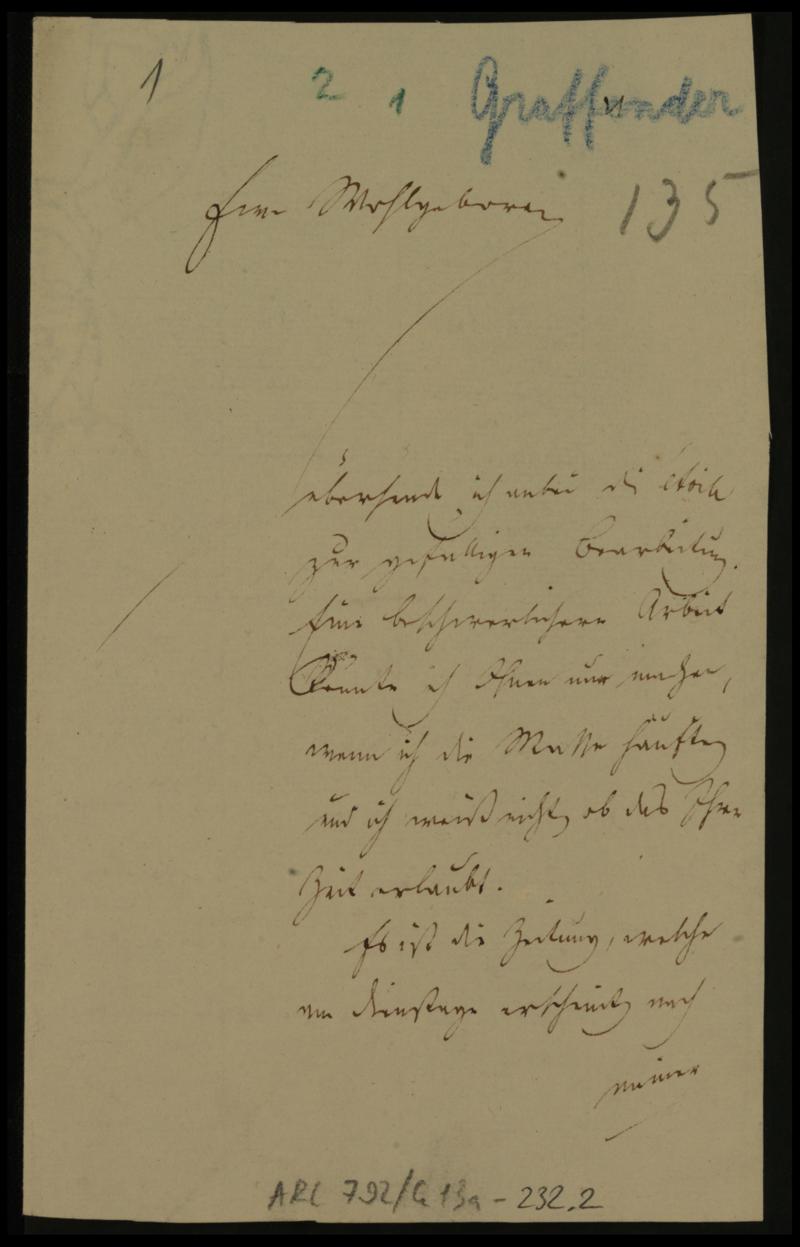 1 2 1 Graffunder
135
Ew. Wohlgeboren
übersende ich anbei die étoile
zur gefälligen Bearbeitung.
Eine beschwerlichere Arbeit
könnte ich Ihnen nur machen,
wenn ich die Masse häufte,
und ich weiß nicht, ob das Ihre
Zeit erlaubt.
Es ist die Zeitung, welche
am Dienstage erscheint, nach
meiner
ARC 792/G 13a - 232.2